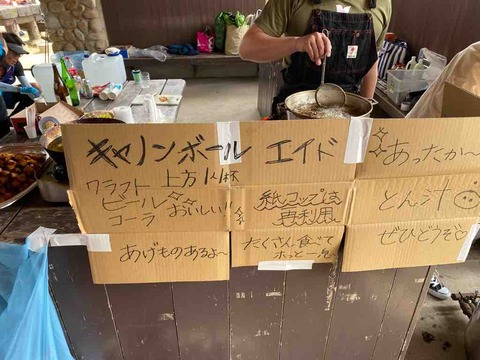 キャノンボール エイド
クラフト 上方ハイ杯
ビール おいしい!!
コーラ
紙コップは
再利用
あったか〜
とん汁
ぜひどうぞ♡
あげものあるよ〜
たくさん食べて
ホッと一息